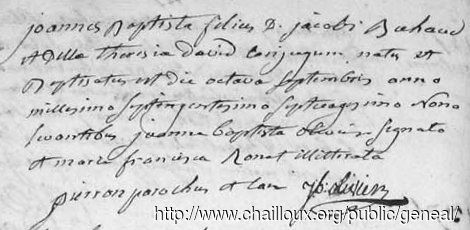 joannes Baptista filius D. jacobi Buhaud
et Dllæ theresia david conjugum natus et
Baptisatus est die octava septembris anno
millesimo septingentesimo septuagesimo nono
levantibus joanne baptista olivier signato
et maria francisca Ronat illitterata
pierron parochus et can jb: olivier
http://www.chailloux.org/public/geneal/